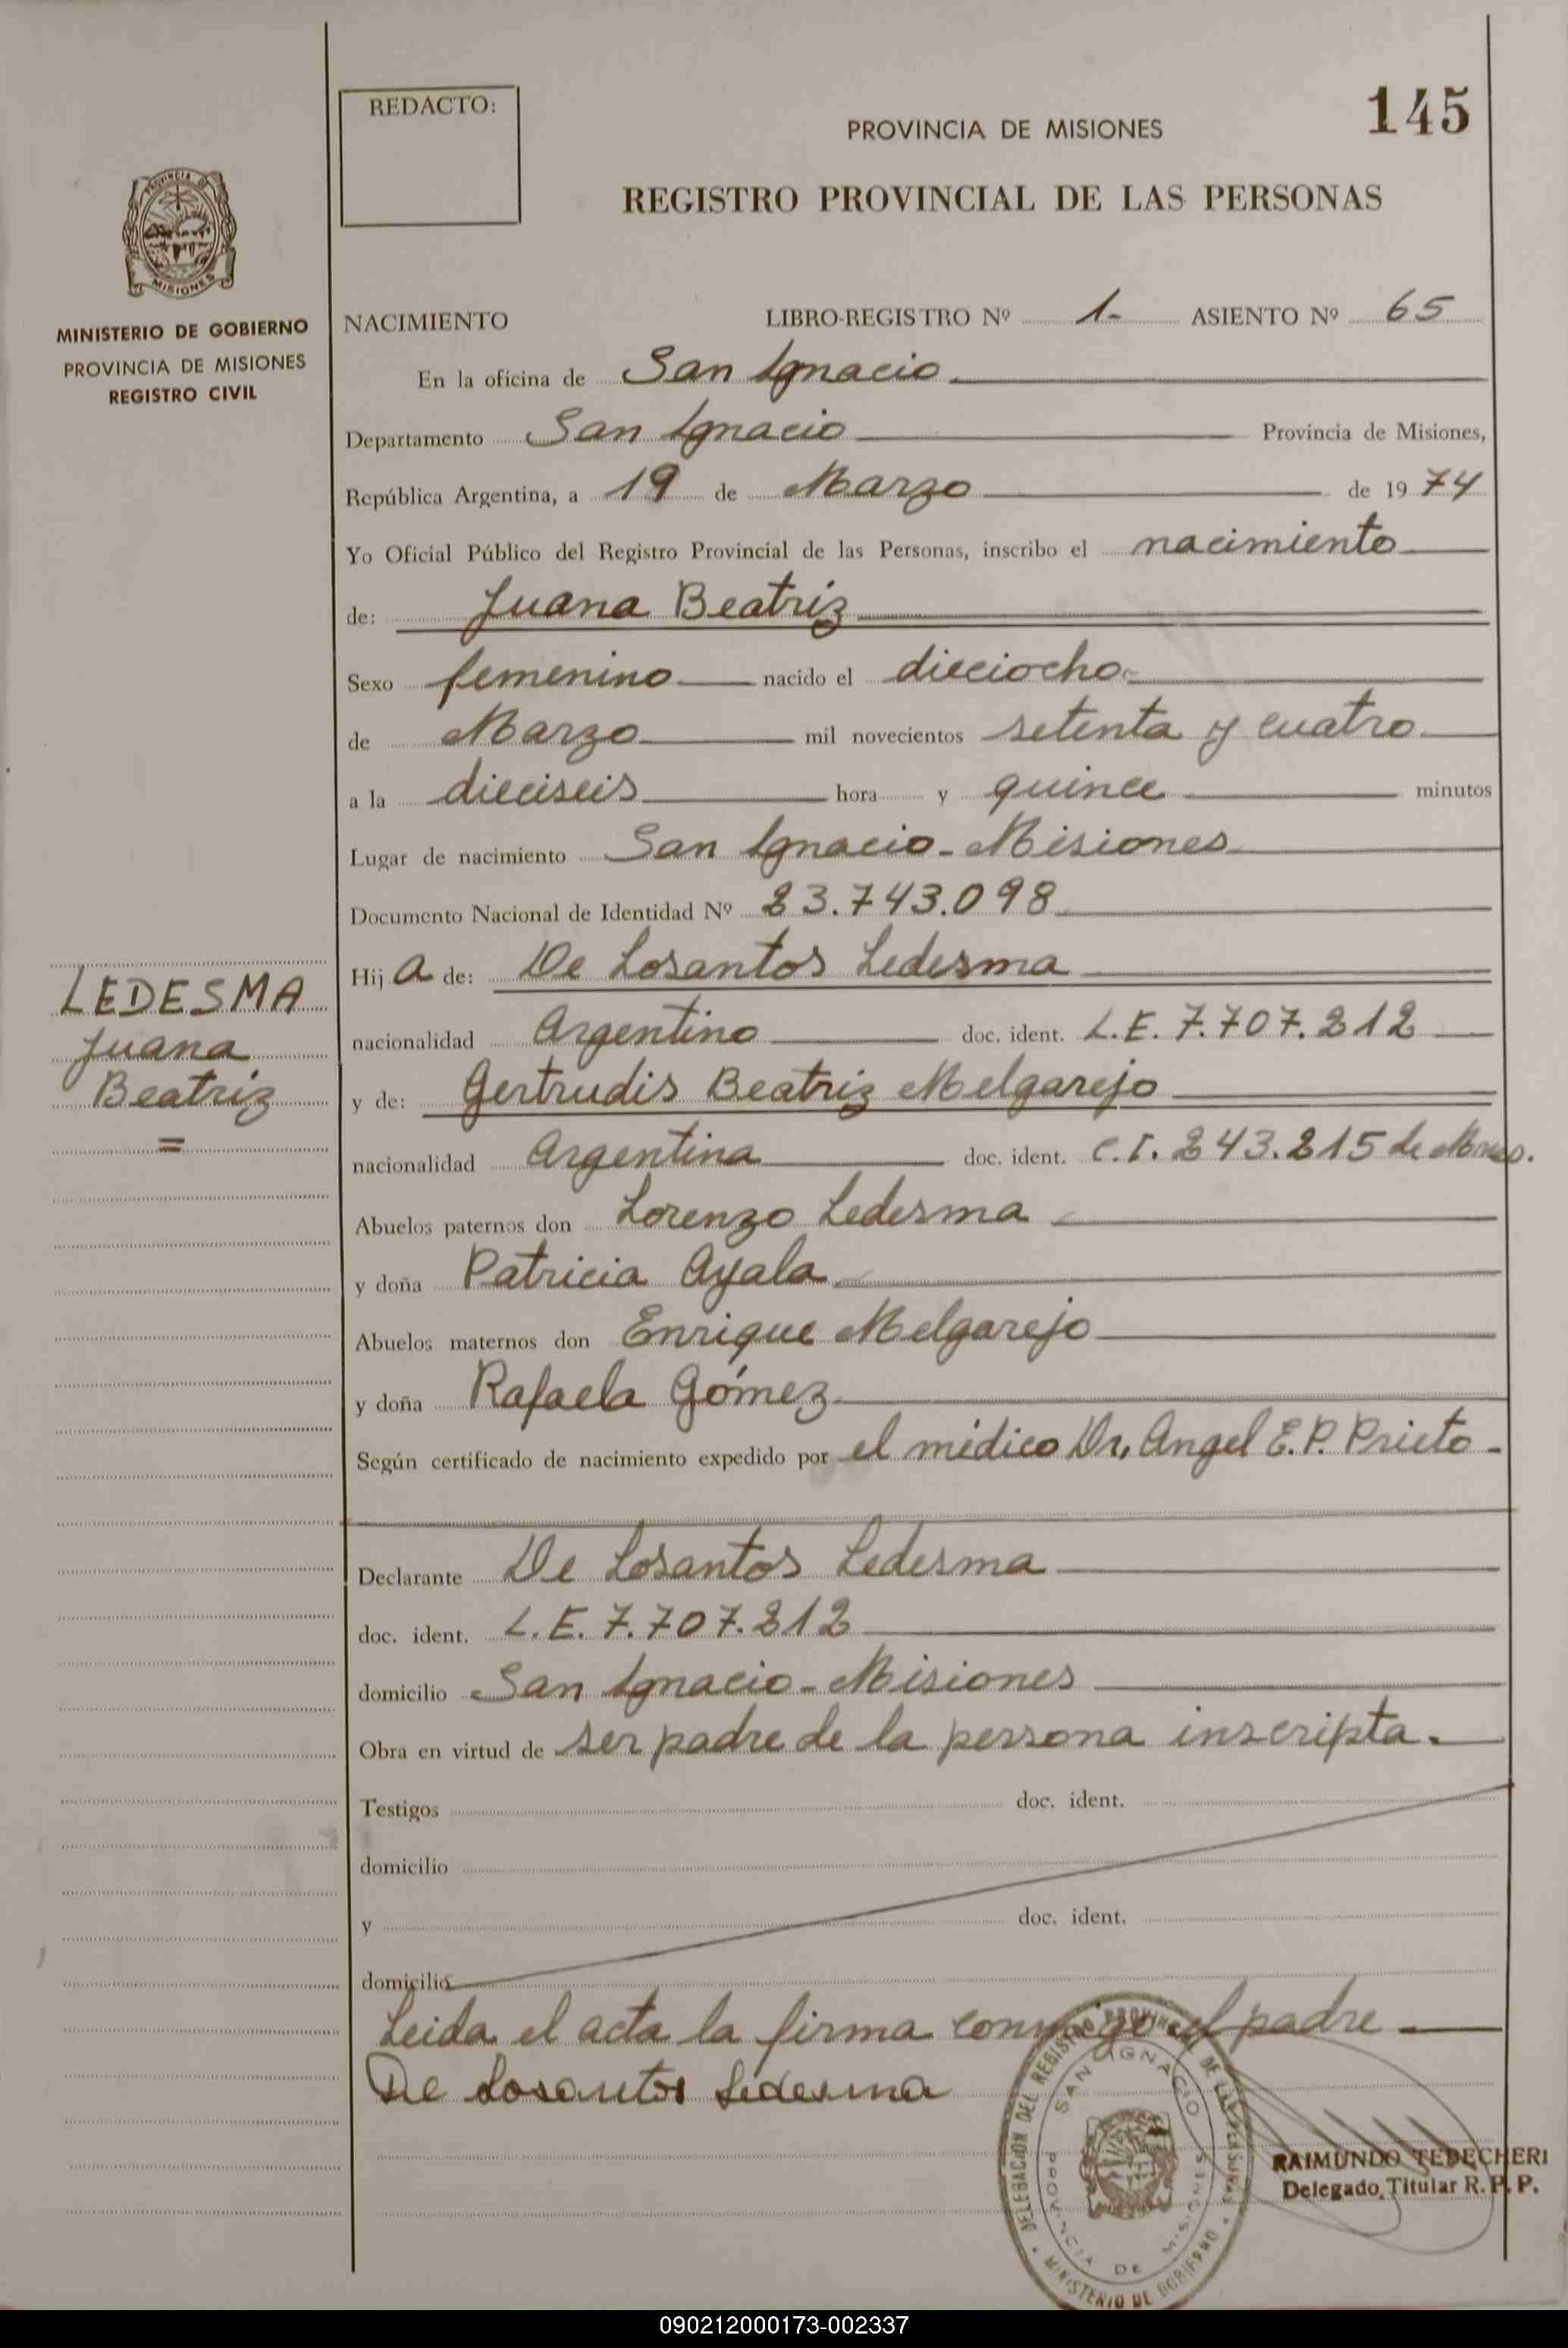 REDACTO:
PROVINCIA DE MISIONES
145
REGISTRO PROVINCIAL DE LAS PERSONAS
PROVINCIA DE
MISIONES
MINISTERIO DE GOBIERNO
PROVINCIA DE MISIONES
REGISTRO CIVIL
NACIMIENTO LIBRO-REGISTRO Nº 1- ASIENTO Nº 65
En la oficina de San Ignacio
Departamento San Ignacio Provincia de Misiones,
República Argentina, a 19 de Marzo de 1974
Yo Oficial Público del Registro Provincial de las Personas, inscribo el nacimiento
de: Juana Beatriz
Sexo femenino nacido el dieciocho
de Marzo mil novecientos setenta y cuatro
a la dieciseis hora y quince minutos
Lugar de nacimiento San Ignacio - Misiones
Documento Nacional de Identidad Nº 23.743.098
LEDESMA
Juana
Beatriz
=
Hija de: De Losantos Ledesma
nacionalidad Argentino doc. ident. L.E. 7.707.212
y de: Gertrudis Beatriz Melgarejo
nacionalidad Argentina doc. ident. C.I. 243.215 de Mnes.
Abuelos paternos don Lorenzo Ledesma
y doña Patricia Ayala
Abuelos maternos don Enrique Melgarejo
y doña Rafaela Gómez
Según certificado de nacimiento expedido por el médico Dr. Angel E.P. Prieto -
Declarante De Losantos Ledesma
doc. ident. L.E. 7.707.212
domicilio San Ignacio - Misiones
Obra en virtud de ser padre de la persona inscripta.
Testigos doc. ident.
domicilio
y doc. ident.
domicilio
Leida el acta la firma conmigo el padre
De Losantos Ledesma
DELEGACION DEL REGISTRO PROVINCIAL DE LAS PERSONAS
SAN IGNACIO
PROVINCIA DE MISIONES
MINISTERIO DE GOBIERNO
RAIMUNDO TEDECHERI
Delegado Titular R. P. P.
090212000173-002337